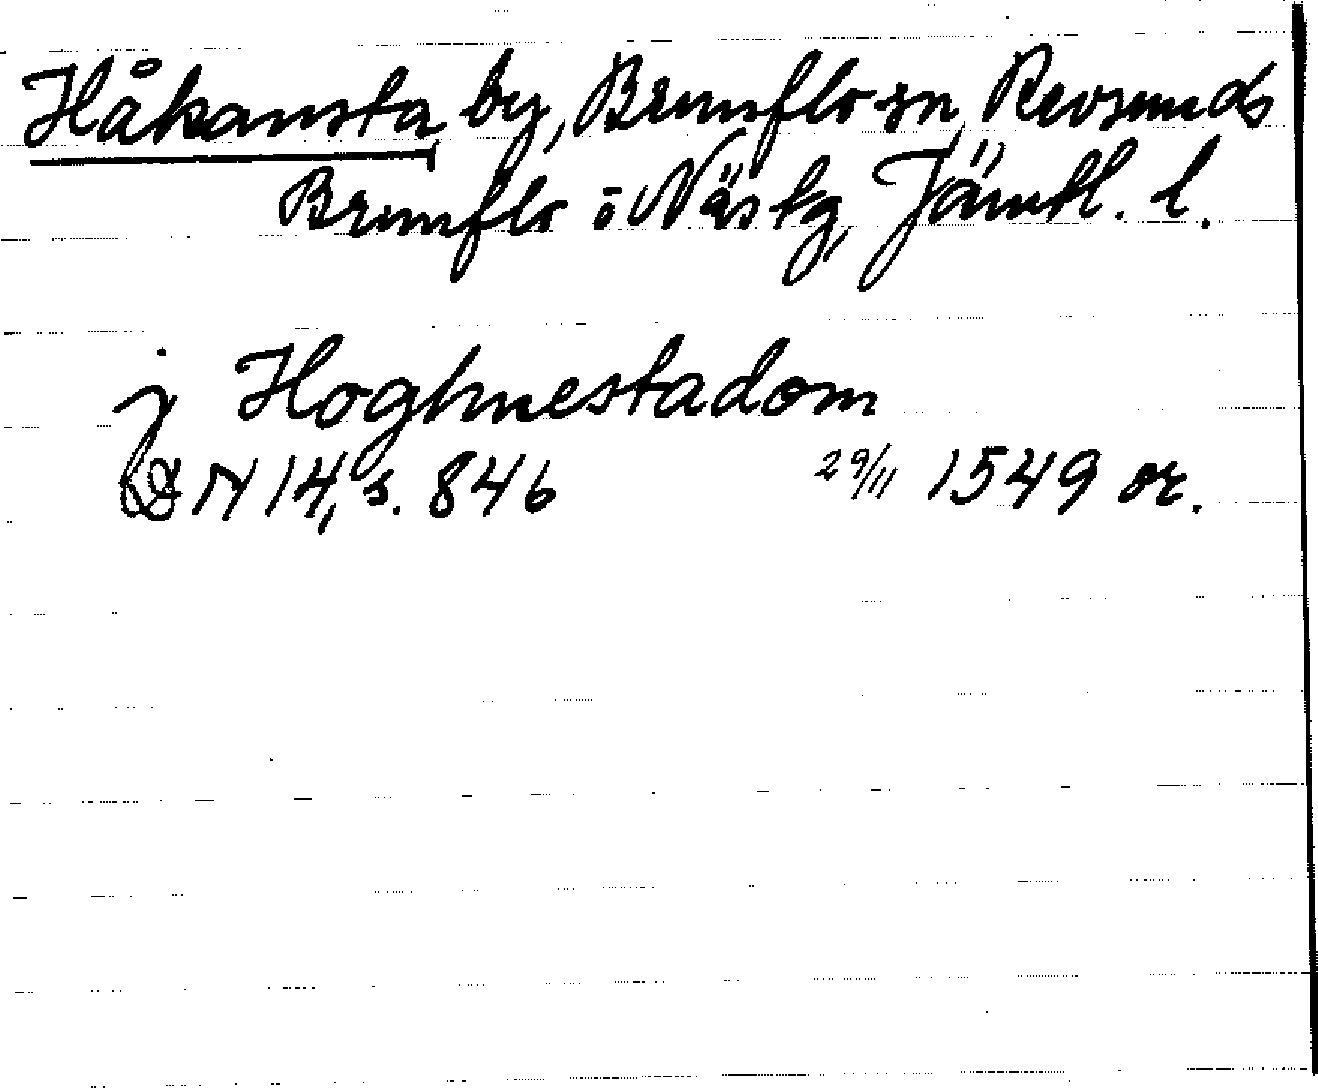 Håkansta by, Brunflo sn, Revsunds
Brunflo o Näs tg, Jämtl. l.
j Hoghnestadom
DN 14, s. 846 29/11 1549 or.